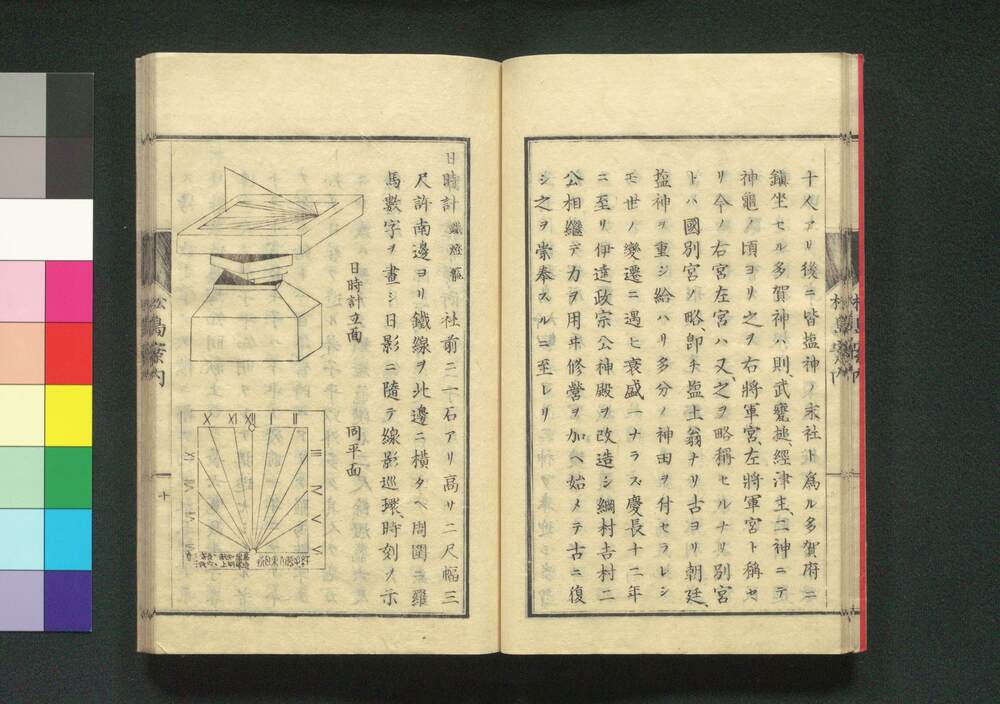 十人アリ後ニ皆塩神ノ末社ト為ル多賀府ニ
鎮坐セル多賀神ハ則、武甕槌、經津主、二神ニテ
神龜ノ頃ヨリ之ヲ右將軍宮、左將軍宮ト稱セ
リ今ノ右宮左宮ハ又、之ヲ略稱セルナリ別宮
トハ國別宮ノ略、即チ塩土翁ナリ古ヨリ朝廷、
塩神ヲ重ジ給ハリ多分ノ神田ヲ付セラレシ
モ世ノ變遷ニ遇ヒ衰盛一ナラズ慶長十二年
ニ至リ伊達政宗公神殿ヲ改造シ綱村吉村二
公相繼デ力ヲ用ヰ修營ヲ加ヘ始メテ古ニ復
シ之ヲ崇奉スルニ至レリ
松島案内
日時計 鐵燈籠 社前ニ一石アリ高サ二尺幅三
尺許南邊ヨリ鐵線ヲ北邊ニ横タヘ周圍ニ羅
馬數字ヲ畫シ日影ニ隨テ線影巡環、時刻ヲ示
日時計立面
同平面
X XI XII I II
III
IV
V
IX
VII
VI
松島案内
十